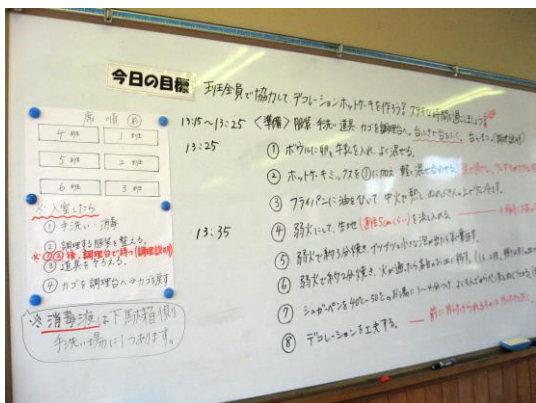 今日の目標 班全員で協力して、デコレーションホットケーキを作ろう!
席 順 前
4班 1班
5班 2班
6班 3班
※入室したら
① 手洗い・消毒
② 調理する服装を整える。
※①②後、調理台で待つ(調理説明)
③ 道具をそろえる。
④ カゴを調理台へ→カゴを戻す
※消毒液は下駄箱側
手洗い場に1つあります。
13:15~13:25 〈準備〉服装 手洗い 道具 カゴを調理台へ。
13:25 ① ボウルに卵、牛乳を入れ、よく混ぜる。
② ホットケーキミックスを①に加え 軽く混ぜ合わせる。
③ フライパンに油をひいて 中火で熱し
13:35 ④ 弱火にして、生地(直径15cmぐらい)を流し入れる。
⑤ 弱火で約3分焼き、プツプツ小さな泡が出たら裏返す。
⑥ 弱火で約2分焼き、火が通ったら
⑦ シュガーペンを40℃~50℃のお湯に3~4分つけ、
⑧ デコレーションを工夫する。